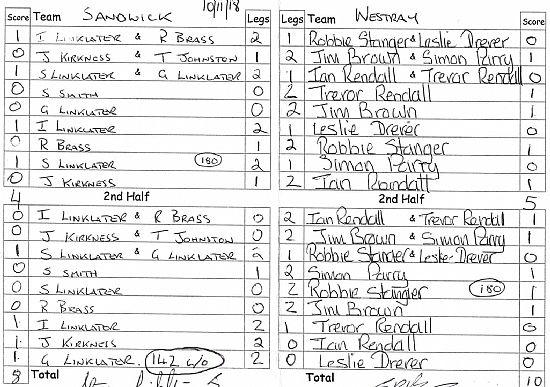 10/11/18
Score Team SANDWICK Legs Legs Team WESTRAY Score
1 I LINKLATER & R BRASS 2 1 Robbie Stanger & Leslie Drever 0
0 J KIRKNESS & T JOHNSTON 1 2 Jim Brown & Simon Parry 1
1 S LINKLATER & G LINKLATER 2 1 Ian Rendall & Trevor Rendall 0
0 S SMITH 0 2 Trevor Rendall 1
0 G LINKLATER 0 2 Jim Brown 1
1 I LINKLATER 2 1 Leslie Drever 0
0 R BRASS 1 2 Robbie Stanger 1
1 S LINKLATER 180 2 1 Simon Parry 0
0 J KIRKNESS 1 2 Ian Rendall 1
4 2nd Half 2nd Half 5
0 I LINKLATER & R BRASS 0 2 Ian Rendall & Trevor Rendall 1
0 J KIRKNESS & T JOHNSTON 0 2 Jim Brown & Simon Parry 1
1 S LINKLATER & G LINKLATER 2 1 Robbie Stanger & Leslie Drever 0
0 S SMITH 1 2 Simon Parry 1
0 S LINKLATER 0 2 Robbie Stanger 180 1
0 R BRASS 0 2 Jim Brown 1
1 I LINKLATER 2 1 Trevor Rendall 0
1 J KIRKNESS 2 0 Ian Rendall 0
1 G LINKLATER. 142 c/o 2 0 Leslie Drever 0
8 Total Total 10